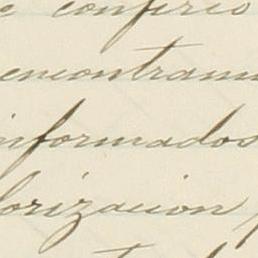 e confirió
encontram
informados
orización